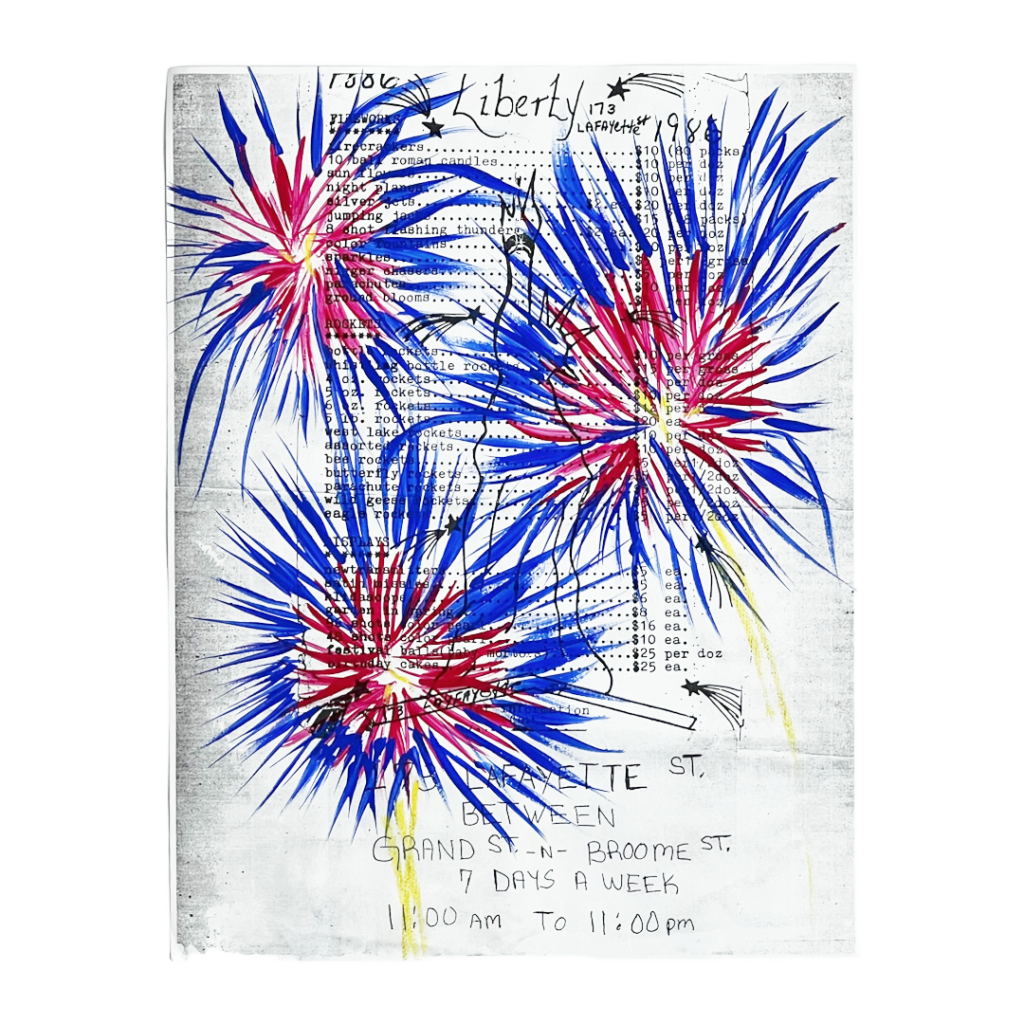 1886 Liberty 173 LAFAYETTE St 1986
FIREWORKS
*********
firecrackers....................$10 (80 packs)
10 ball roman candles...........$10 per doz
sun flowers.....................$10 per doz
night planes....................$10 per doz
silver jets...............$2 ea $20 per doz
jumping jacks...................$15 packs)
8 shot flashing thunders..$2 ea. $20 per doz
color fountains.................per doz
sparkles........................$5 gross
nigger chasers..................$5 per doz
parachutes......................$10 per doz
ground blooms...................per doz
ROCKETS
*******
bottle rockets..................$10 per gross
whistling bottle rockets........$15 per gross
4 oz. rockets...................per doz
5 oz. rockets...................$10 per doz
6 oz. rockets...................$12 per
5 lb. rockets...................$20 ea.
west lake rockets...............$10 per doz
assorted rockets................$10 per doz
bee rockets.....................$5 per1/2doz
butterfly rockets...............per1/2doz
parachute rockets...............per1/2doz
wild geese rockets..............$5 per1/2doz
eagle rockets...................$5 per1/2doz
DISPLAYS
********
.......$5 ea.
satin missles...................$5 ea.
.......$6 ea.
garden in spring................$8 ea.
96 shots color pearl............$16 ea.
48 shots color pearl............$10 ea.
festival balls(baby mortors)....$25 per doz
birthday cakes..................$25 ea.
173 LAFAYETTE
information
173 LAFAYETTE ST.
BETWEEN
GRAND ST. -N- BROOME ST.
7 DAYS A WEEK
11:00 AM TO 11:00pm